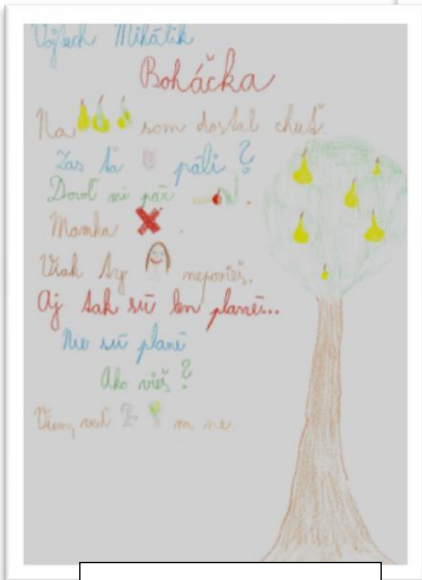 Vojtech Mihálik
Boháčka
Na som dostal chuť
Zas ťa páli ?
Dovoľ mi pár .
Mamka .
Však ty nepovieš.
Aj tak sú len plané...
Nie sú plané
Ako vieš ?
Viem, veď m ne